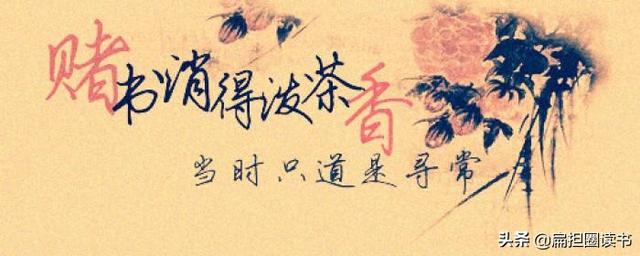 赌书消得泼茶香
当时只道是寻常
头条 @扁担圈读书